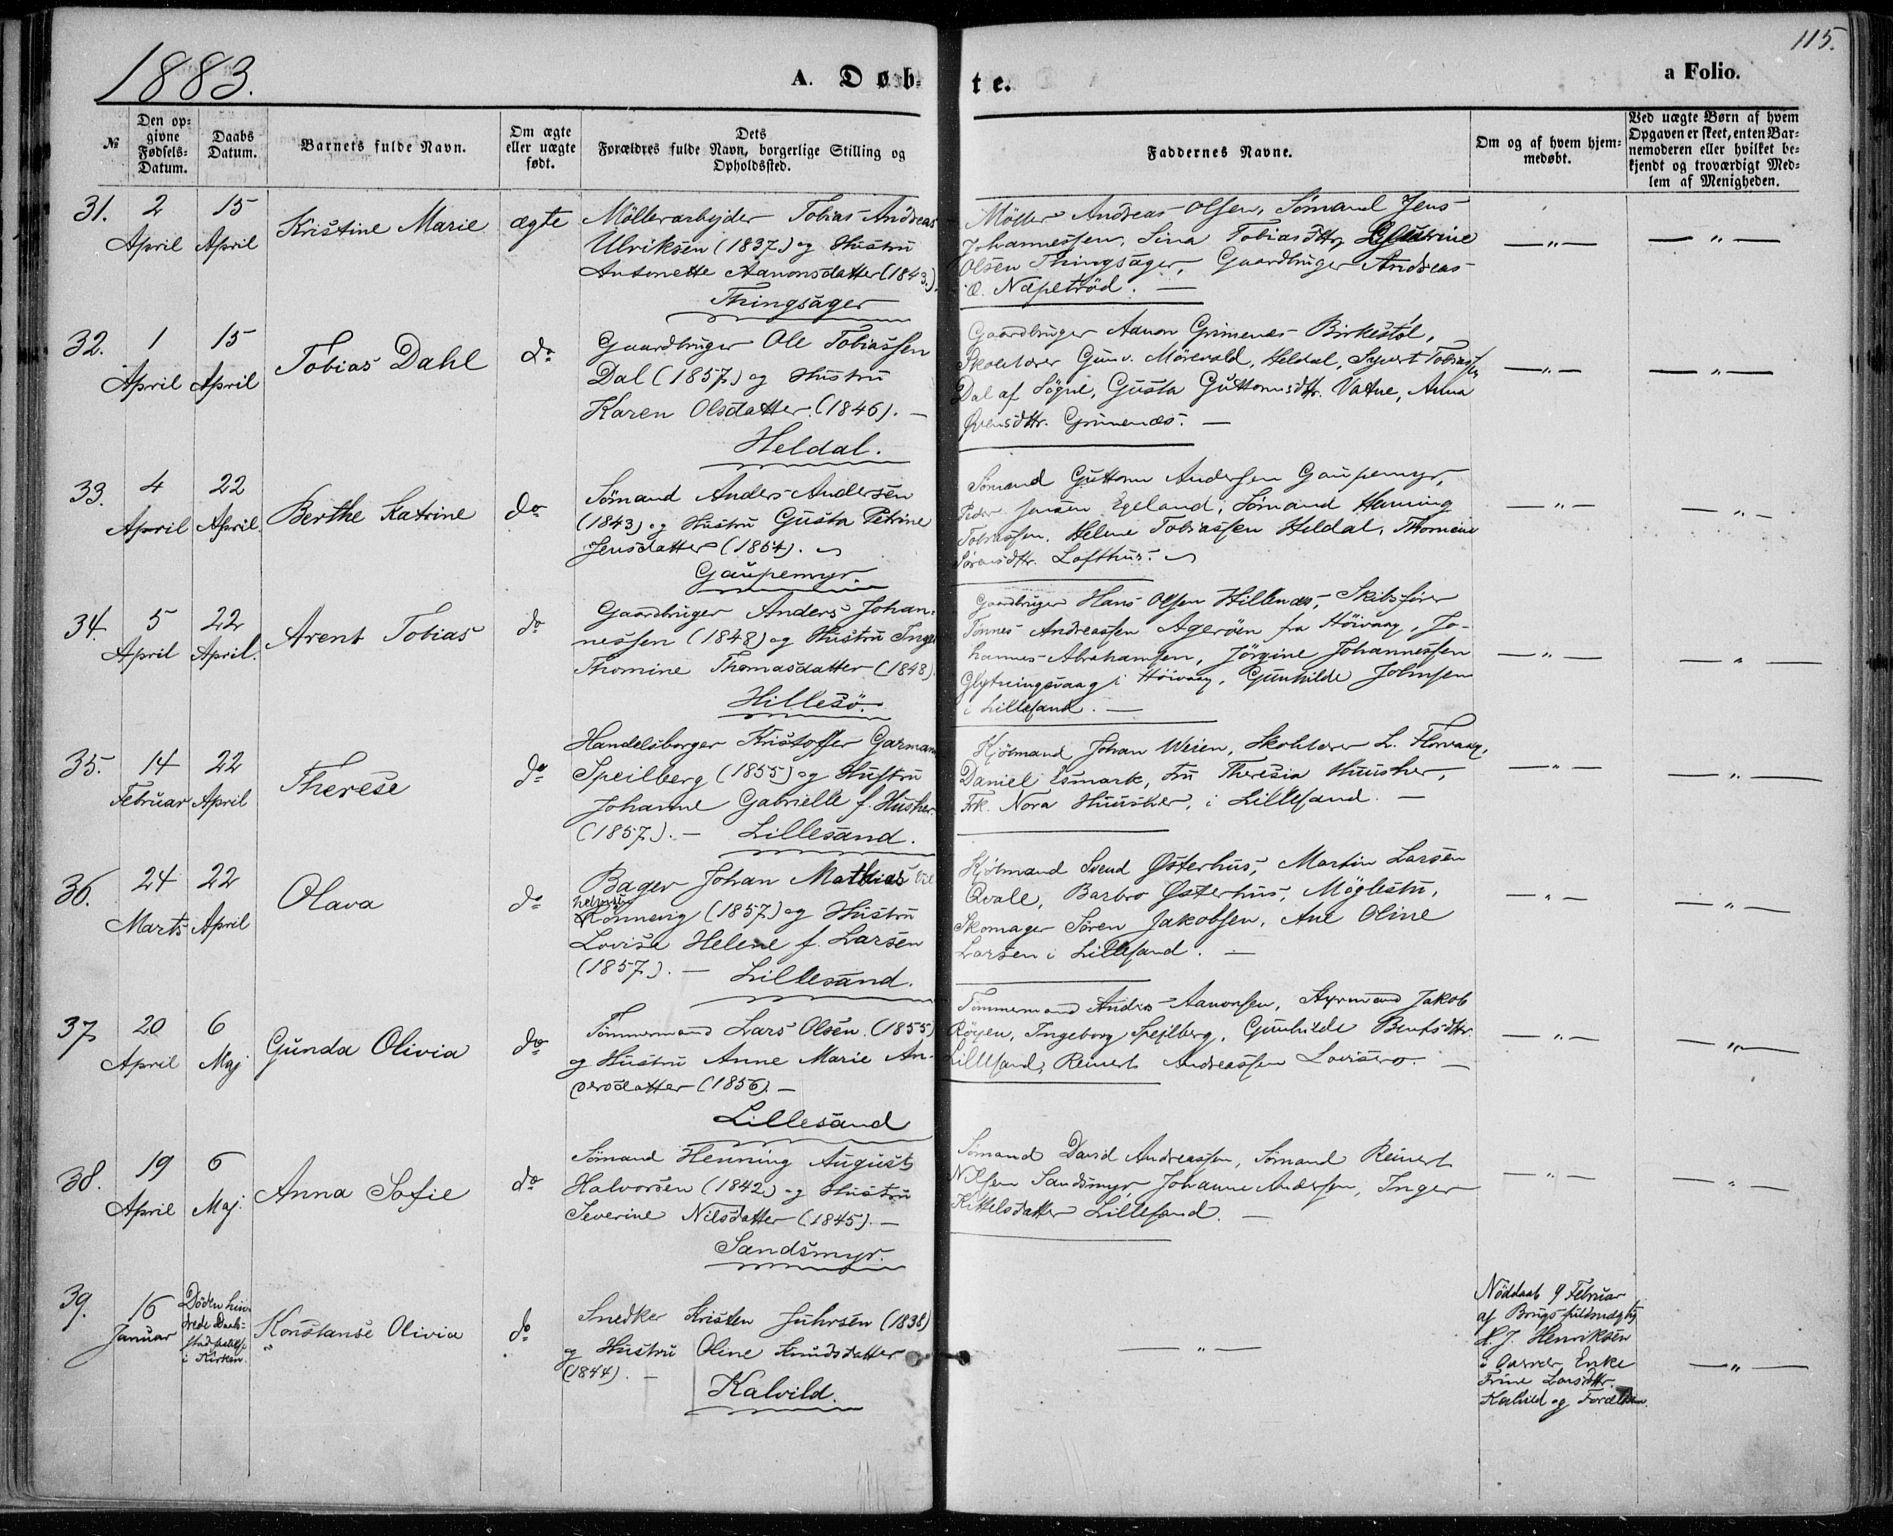 1883.
115.
A. Døb-
te.
a Folio.
№
Den op-
givne
Fødsels-
Datum.
Daabs
Datum.
Barnets fulde Navn.
Om ægte
eller uægte
født.
Dets
Forældres fulde Navn, borgerlige Stilling og
Opholdssted.
Faddernes Navne.
Om og af hvem hjem-
medøbt.
Ved uægte Børn af hvem
Opgaven er skeet, enten Bar-
nemoderen eller hvilket be-
kjendt og troværdigt Med-
lem af Menigheden.
31.
2
April
15
April
Kristine Marie
ægte
Möllerarbejder Tobias Andreas
Ulriksen (1837.) og Hustru
Antonette Aanonsdatter (1843.).
Thingsåger
Möller Andreas Olsen, Sömand Jens
Johannessen, Sina Tobiasdttr,
Olsen Thingsåger, Gaardbruger Andreas
Næpetröd. —
— " —
— " —
32.
1
April
15
April
Tobias Dahl
do
Gaardbruger Ole Tobiassen
Dal (1857.) og Hustru
Karen Olsdatter. (1846). —
Heldal.
Gaardbruger Aanon Grimenes Birkestöl,
Skolelærer Gunv. Mörevold, Heldal, Sivert Tobiassen
Dal af Sögne, Gusta Guttormsdttr. Vatne, Anna
Grimenæs. —
— " —
— " —
33.
4
April
22
April.
Berthe Katrine
do
Sömand Anders Andersen
(1843) og Hustru Gusta Petrine
Jensdatter (1854).
Gaupemyr.
Sömand Guttorm Andersen Gaupemyr,
Peder Jensen Egeland, Sömand Henning
Tobiassen, Helene Tobiassen Heldal, Thomine
Sörensdttr. Lofthus.
— " —
— " —
34.
5
April
22
April.
Arent Tobias
do
Gaardbruger Anders Johan-
nessen (1848) og Hustru Inger
Thomine Thomasdatter (1848).
Hillesö.
Gaardbruger Hans Olsen Hillenæs, Skibsförer
Tönnes Andreassen Ageröen fra Höivaag, Jo-
hannes Abrahamsen, Jörgine Johannessen
Glytningsvaag i Höivaag, Gunhilde Johnsen
i Lillesand. —
— " —
— " —
35.
14
Februar
22
April
Therese
do
Handelsborger Kristoffer Garmann
Speilberg (1855) og Hustru
Johanne Gabrielle f. Husher
(1857.). — Lillesand.
Kjöbmand Johan Weien, Skolelærer L. Florvaag,
Daniel Esmark, Fru Theresia Huusher,
Frk. Nora Huusher, i Lillesand. —
— " —
— " —
36.
24
Marts
22
April
Olava
do
Bager Johan Mathias Vil
helmsen
Rönnevig (1857.) og Hustru
Lovise Helene f. Larsen
(1857.). — Lillesand.
Kjöbmand Svend Østerhus, Martin Larsen
Qvale, Barbro Østerhus, Möglestu,
Skomager Sören Jakobsen, Ane Oline
Larsen i Lillesand. —
— " —
— " —
37
20
April
6
Maj
Gunda Olivia
do
Tömmermand Lars Olsen. (1855)
og Hustru Anne Marie An-
dersdatter (1856). —
Lillesand
Tömmermand Andr. Aanonsen, Styrmand Jakob
Röyen, Ingeborg Spejlberg, Gunhilde Bentsdttr.
Lillesand, Reinert Andreassen —
— " —
— " —
38.
19
April
6
Maj.
Anna Sofie
do
Sömand Henning August
Halvorsen (1842.) og Hustru
Severine Nilsdatter (1845). —
Sandsmyr.
Sömand David Andreassen, Sömand Reinert
Nilsen Sandsmyr, Johanne Andersen, Inger
Kittelsdatter Lillesand. —
— " —
— " —
39.
16
Januar
Döden hin-
drede Daabs-
stadfæstelse
i Kirken.
Konstanse Olivia
do
Snedker Kristen Juhrsen (1838)
og Hustru Oline Knudsdatter
(1844). —
Kalvild.
— " —
Nöddaab 9 Februar
af Brugsfuldmægtig
H. J. Henriksen
Enke
Trine Larsdttr.
Kalvild og Forældrene.
— " —